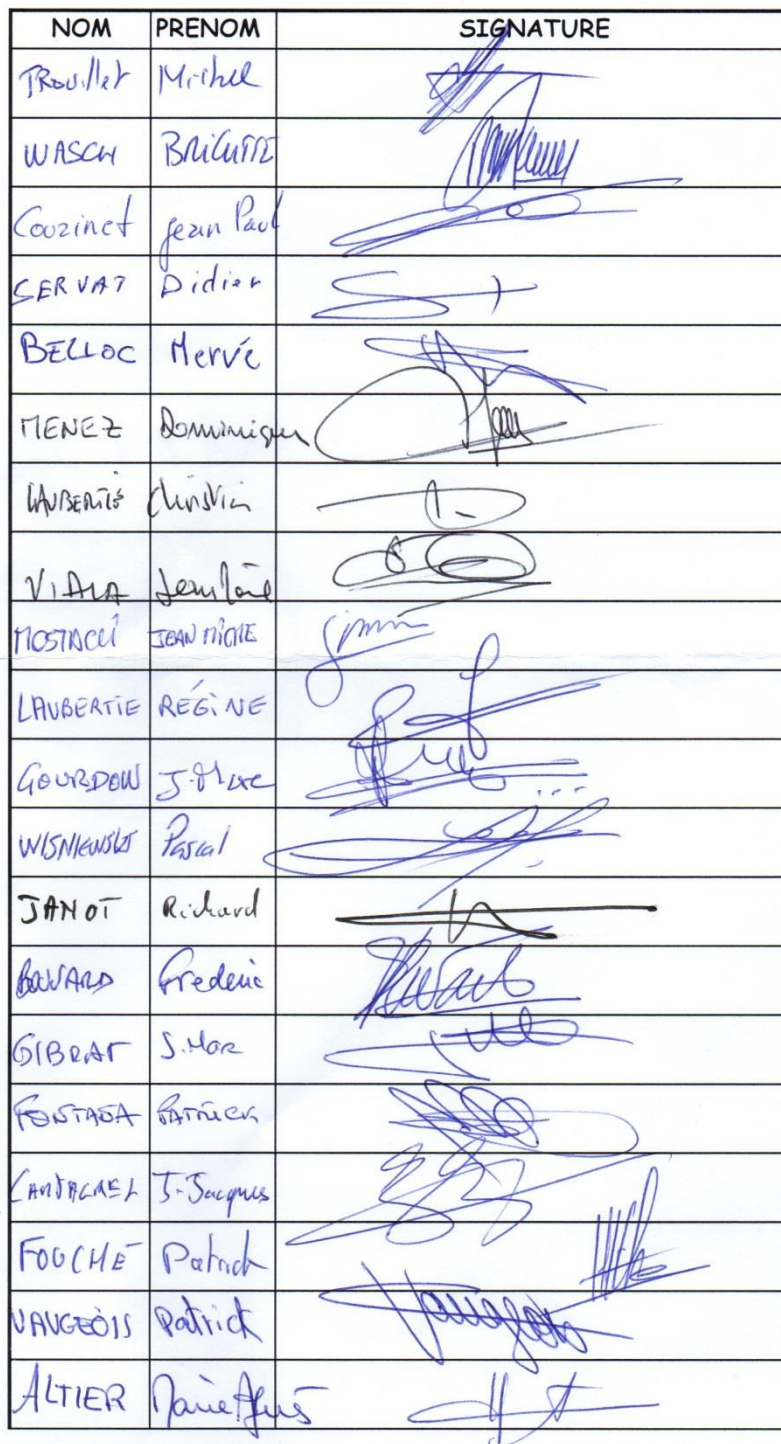 NOM PRENOM SIGNATURE
TROUILLET Michel
WASCH BRIGITTE
Couzinet Jean Paul
SERVAT Didier
BELLOC Hervé
MENEZ Dominique
LAUBERTIE Christian
VIALA
JEAN MICHE
LAUBERTIE RÉGINE
GOURDON J. Marc
WISNIEWSKI Pascal
JANOT Richard
BOUVARD Frederic
GIBRAT J. Marc
FONTANA PATRICK
CANTAGREL J-Jacques
FOUCHÉ Patrick
VAUGEOIS Patrick
ALTIER Marie Agnès